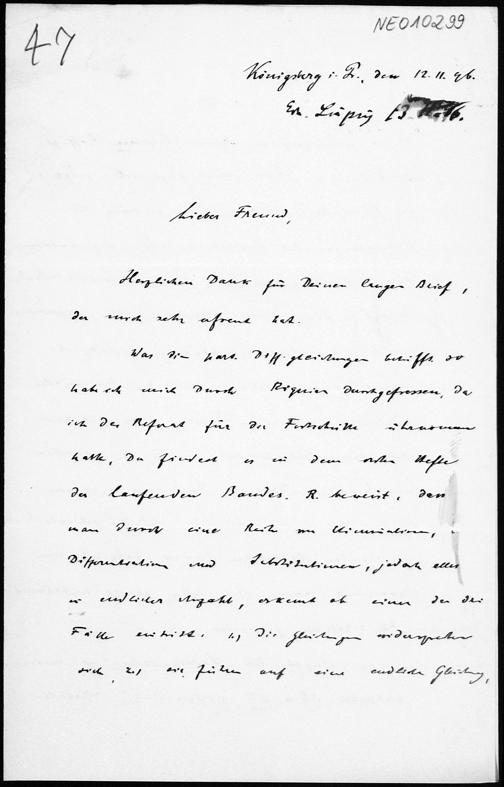 47
NE010299
Königsberg i. Pr., den 12.11.96.
Erh. Leipzig 13
Lieber Freund,
Herzlichen Dank für Deinen langen Brief,
der mich sehr erfreut hat.
Was die part. Diff. gleichungen betrifft so
habe ich mich durch Riquier durchgefressen, da
ich das Referat für die Fortschritte übernommen
hatte, Du findest es in dem ersten Hefte
des laufenden Bandes. R. beweist, dass
man durch eine Reihe von Eliminationen,
Differentiation und Substitutionen, jedoch alles
in endlicher Anzahl, erkennt ob einer der drei
Fälle eintritt: 1) Die Gleichungen widersprechen
sich, 2) sie führen auf eine endliche Gleichung,